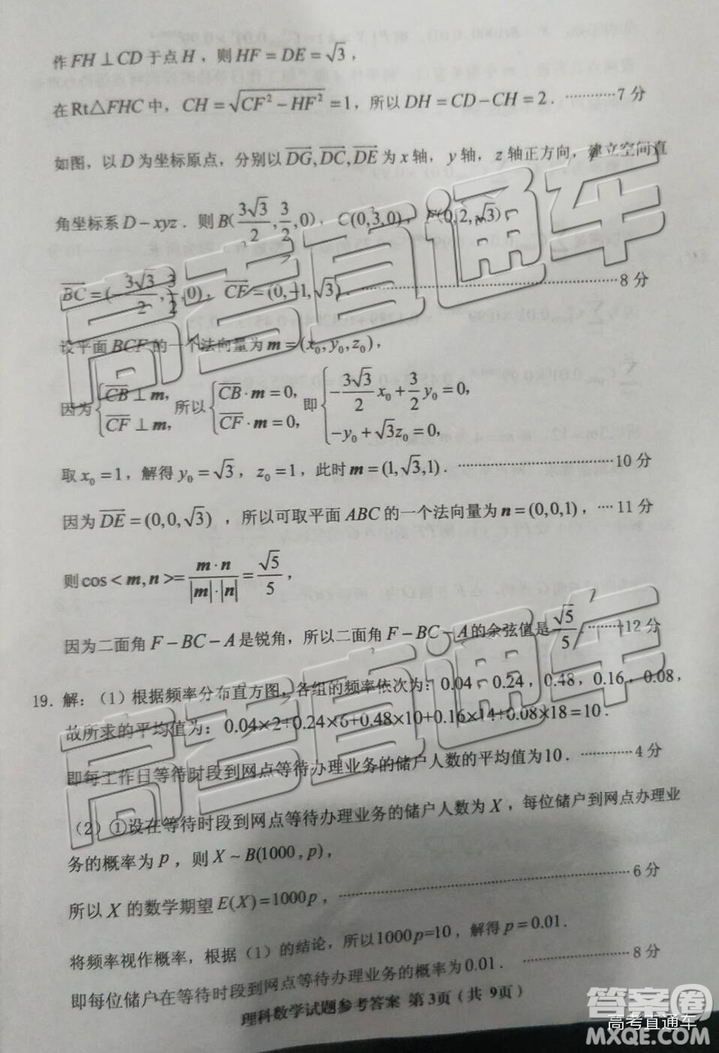 作FH⊥CD于点H，则HF=DE=√3，
在Rt△FHC中，CH=√(CF²−HF²)=1，所以DH=CD−CH=2．…………7分
如图，以D为坐标原点，分别以DG,DC,DE为x轴，y轴，z轴正方向，建立空间直
角坐标系D−xyz．则B(3√3/2,3/2,0)，C(0,3,0)，F(0,2,√3)．
BC=(−3√3/2,3/2,0)，CF=(0,−1,√3)．…………8分
设平面BCF的一个法向量为m=(x₀,y₀,z₀)，
因为{CB⊥m, CF⊥m, 所以{CB·m=0, CF·m=0, 即{−3√3/2 x₀+3/2 y₀=0, −y₀+√3z₀=0,
取x₀=1，解得y₀=√3，z₀=1，此时m=(1,√3,1)．…………10分
因为DE=(0,0,√3)，所以可取平面ABC的一个法向量为n=(0,0,1)，…11分
则cos<m,n>=m·n/|m|·|n|=√5/5，
因为二面角F−BC−A是锐角，所以二面角F−BC−A的余弦值是√5/5．………12分
19．解：（1）根据频率分布直方图，各组的频率依次为：0.04，0.24，0.48，0.16，0.08，
故所求的平均值为：0.04×2+0.24×6+0.48×10+0.16×14+0.08×18=10．
即每工作日等待时段到网点等待办理业务的储户人数的平均值为10．…………4分
（2）①设在等待时段到网点等待办理业务的储户人数为X，每位储户到网点办理业
务的概率为p，则X~B(1000,p)，
所以X的数学期望E(X)=1000p，…………6分
将频率视作概率，根据（1）的结论，所以1000p=10，解得p=0.01．
即每位储户在等待时段到网点等待办理业务的概率为0.01．…………8分
理科数学试题参考答案 第3页（共 9页）
高考直通车
高考直通车
答案圈
高考直通车
MXQE.COM